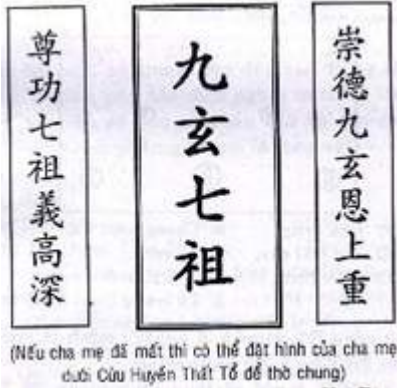 崇德九玄恩上重
九玄七祖
尊功七祖義高深
(Nếu cha mẹ đã mất thì có thể đặt hình của cha mẹ
dưới Cửu Huyền Thất Tổ để thờ chung)